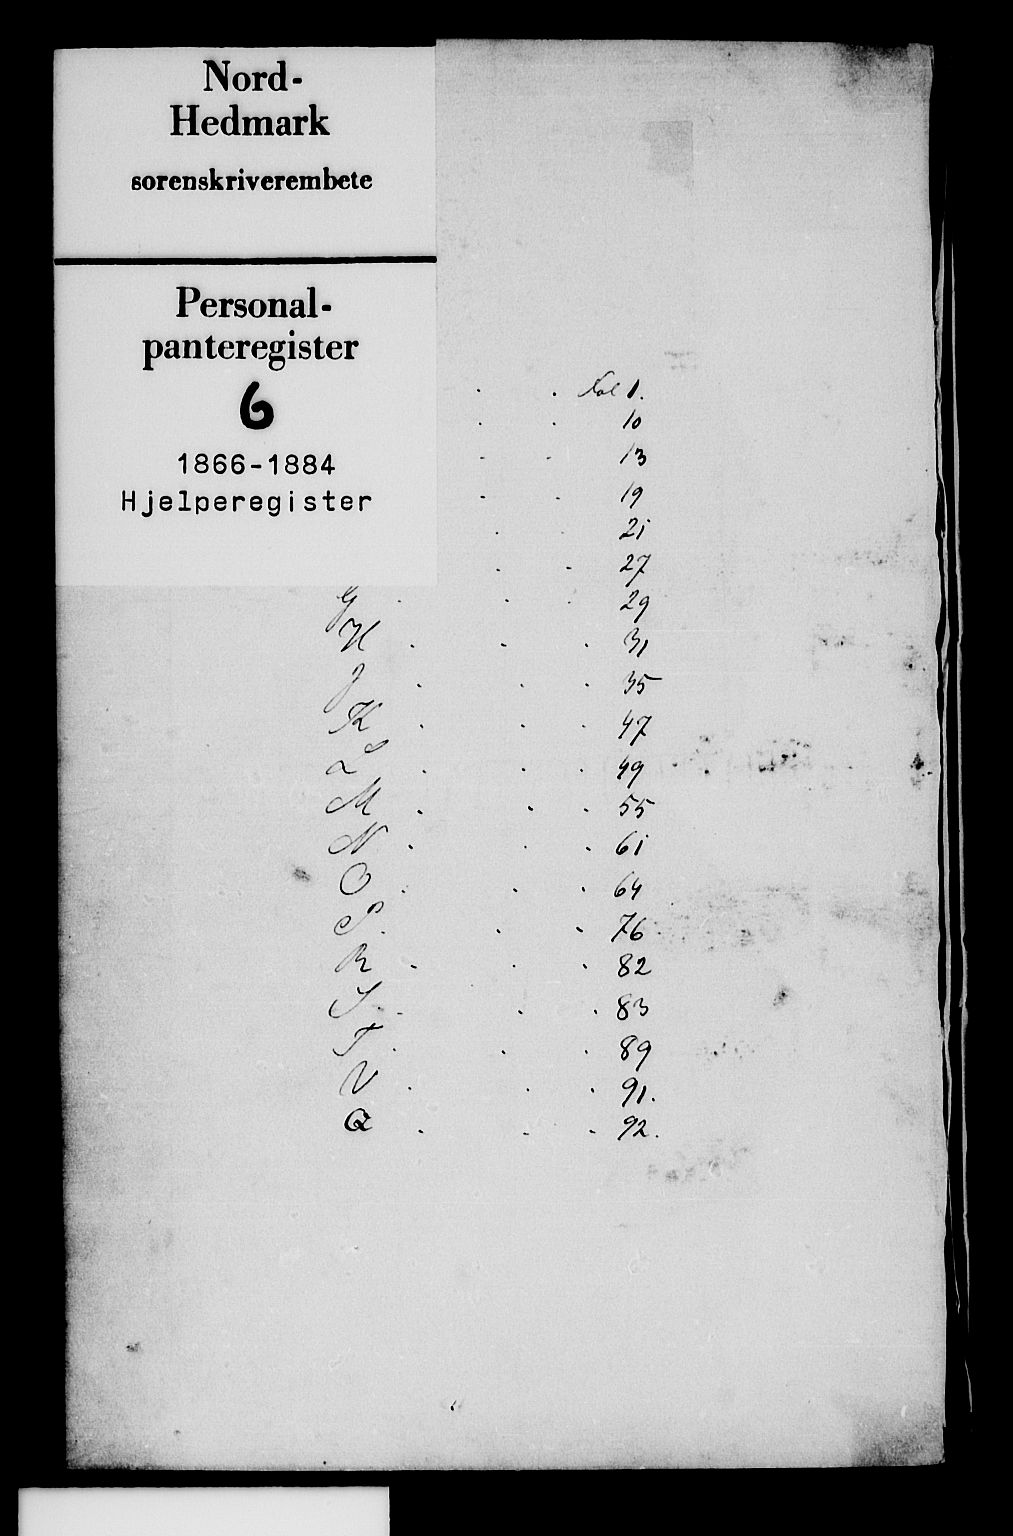 Nord-
Hedmark
sorenskriverembete
Personal-
panteregister
6
1866-1884
Hjelperegister
. . Fol 1.
. . 10
. . 13
. . 19
. . 21
. . 27
G . . . 29
H . . . 31
J . . . 35
K . . . 47
L . . . 49
M . . . 55
N . . . 61
O . . . 64
P . . . 76
R . . . 82
S . . . 83
T . . . 89
V . . . 91.
Q . . . 92.